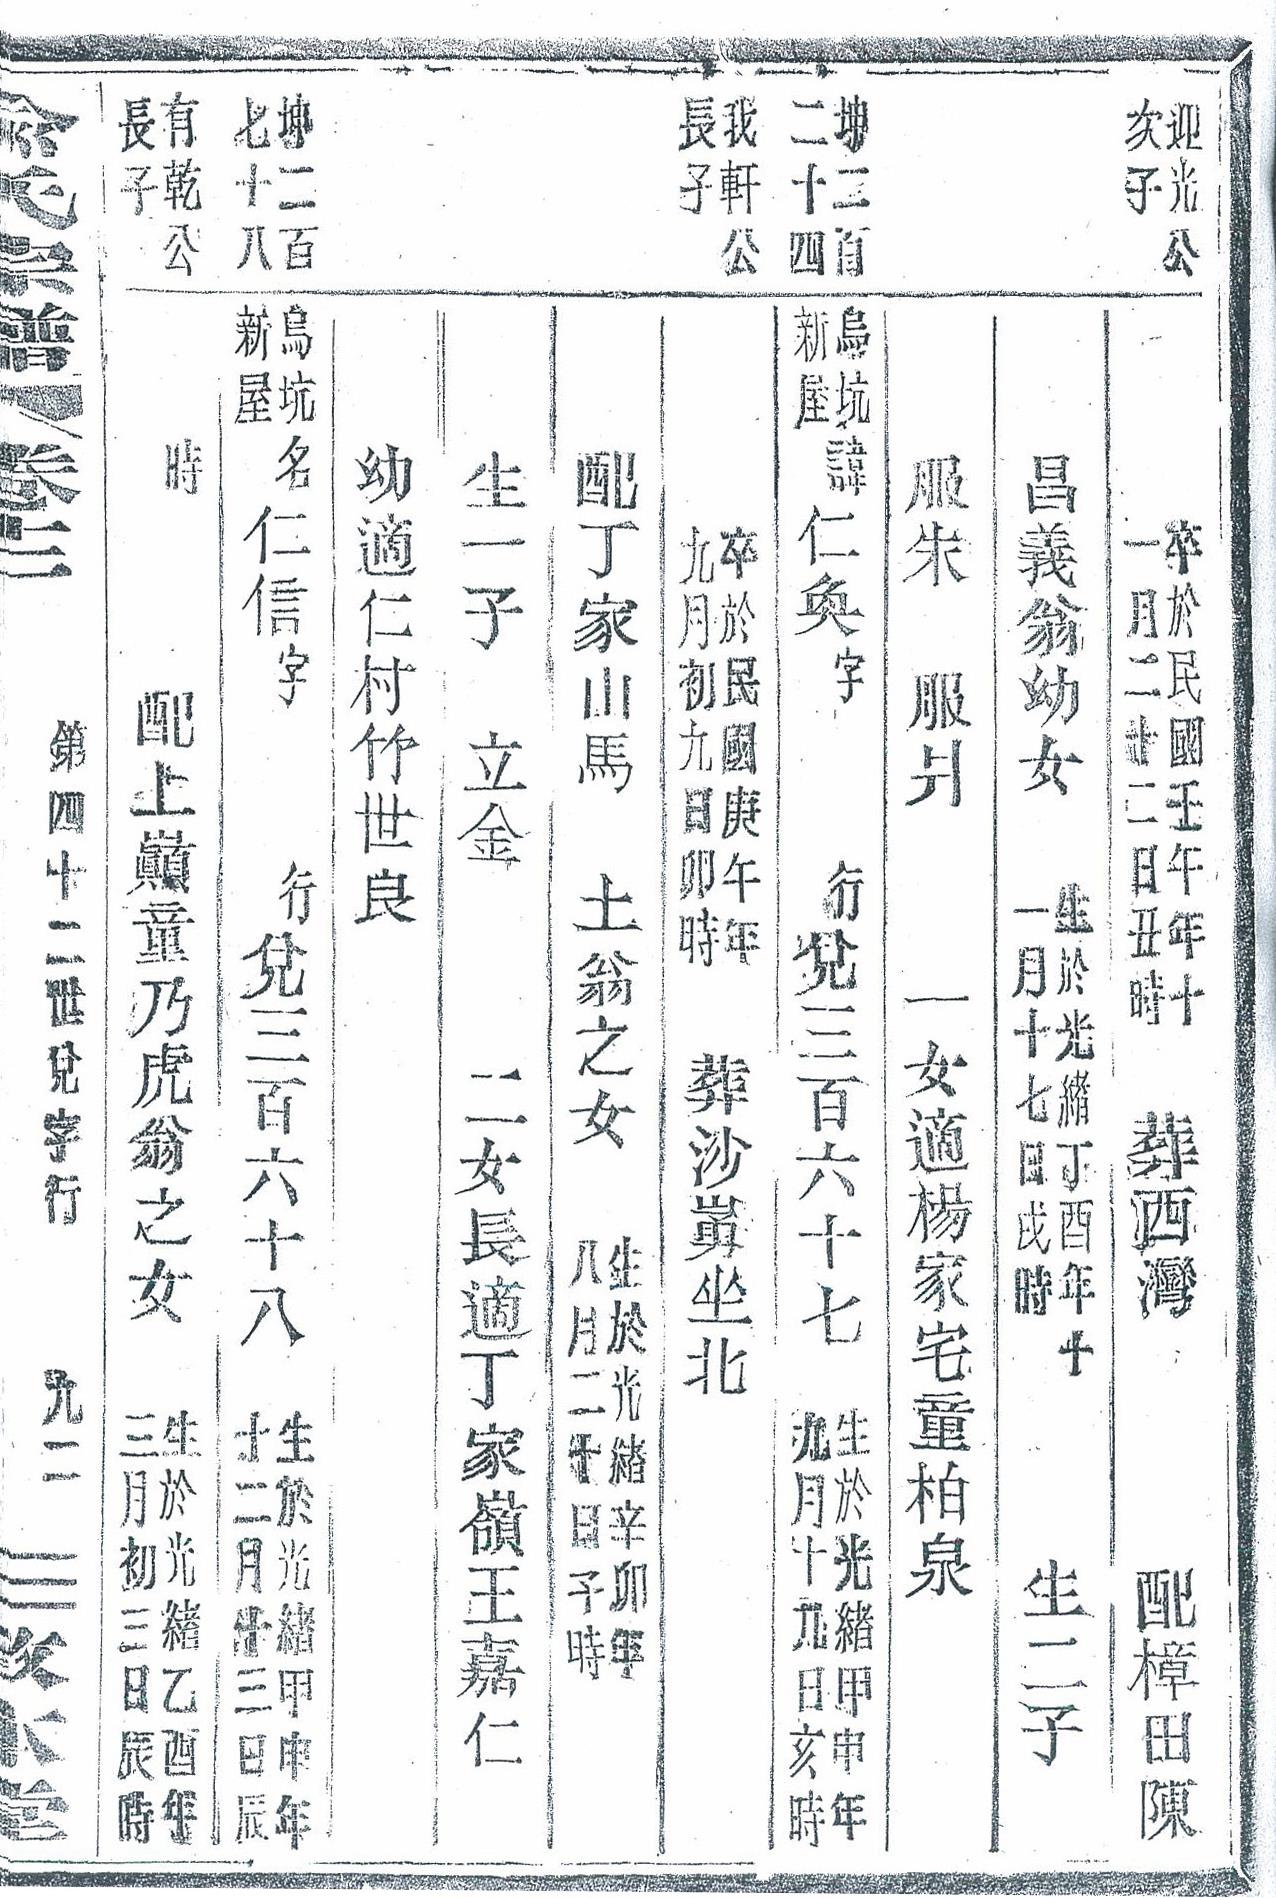 迎光公
次子
卒於民國壬午年十
一月二廿二日丑時
葬西灣
配樟田陳
昌義翁幼女
生於光緒丁酉年十
一月十七日戌時
生二子
服朱 服爿 一女適楊家宅童柏泉
坤二百
二十四
烏坑
新屋
諱仁奐字 行兌三百六十七
生於光緒甲申年
九月十九日亥時
我軒公
長子
卒於民國庚午年
九月初九日卯時
葬沙㟁坐北
配丁家山馬 土翁之女
生於光緒辛卯年
八月二十日子時
生一子 立金 二女長適丁家嶺王嘉仁
幼適仁村竹世良
坤二百
七十八
烏坑
新屋
名仁信字 行兌三百六十八
生於光緒甲申年
十二月廿三日辰
有乾公
長子
時
配上巔童乃虎翁之女
生於光緒乙酉年
三月初三日辰時
俞氏宗譜 卷二
第四十二世兌字行 九二
敦本堂